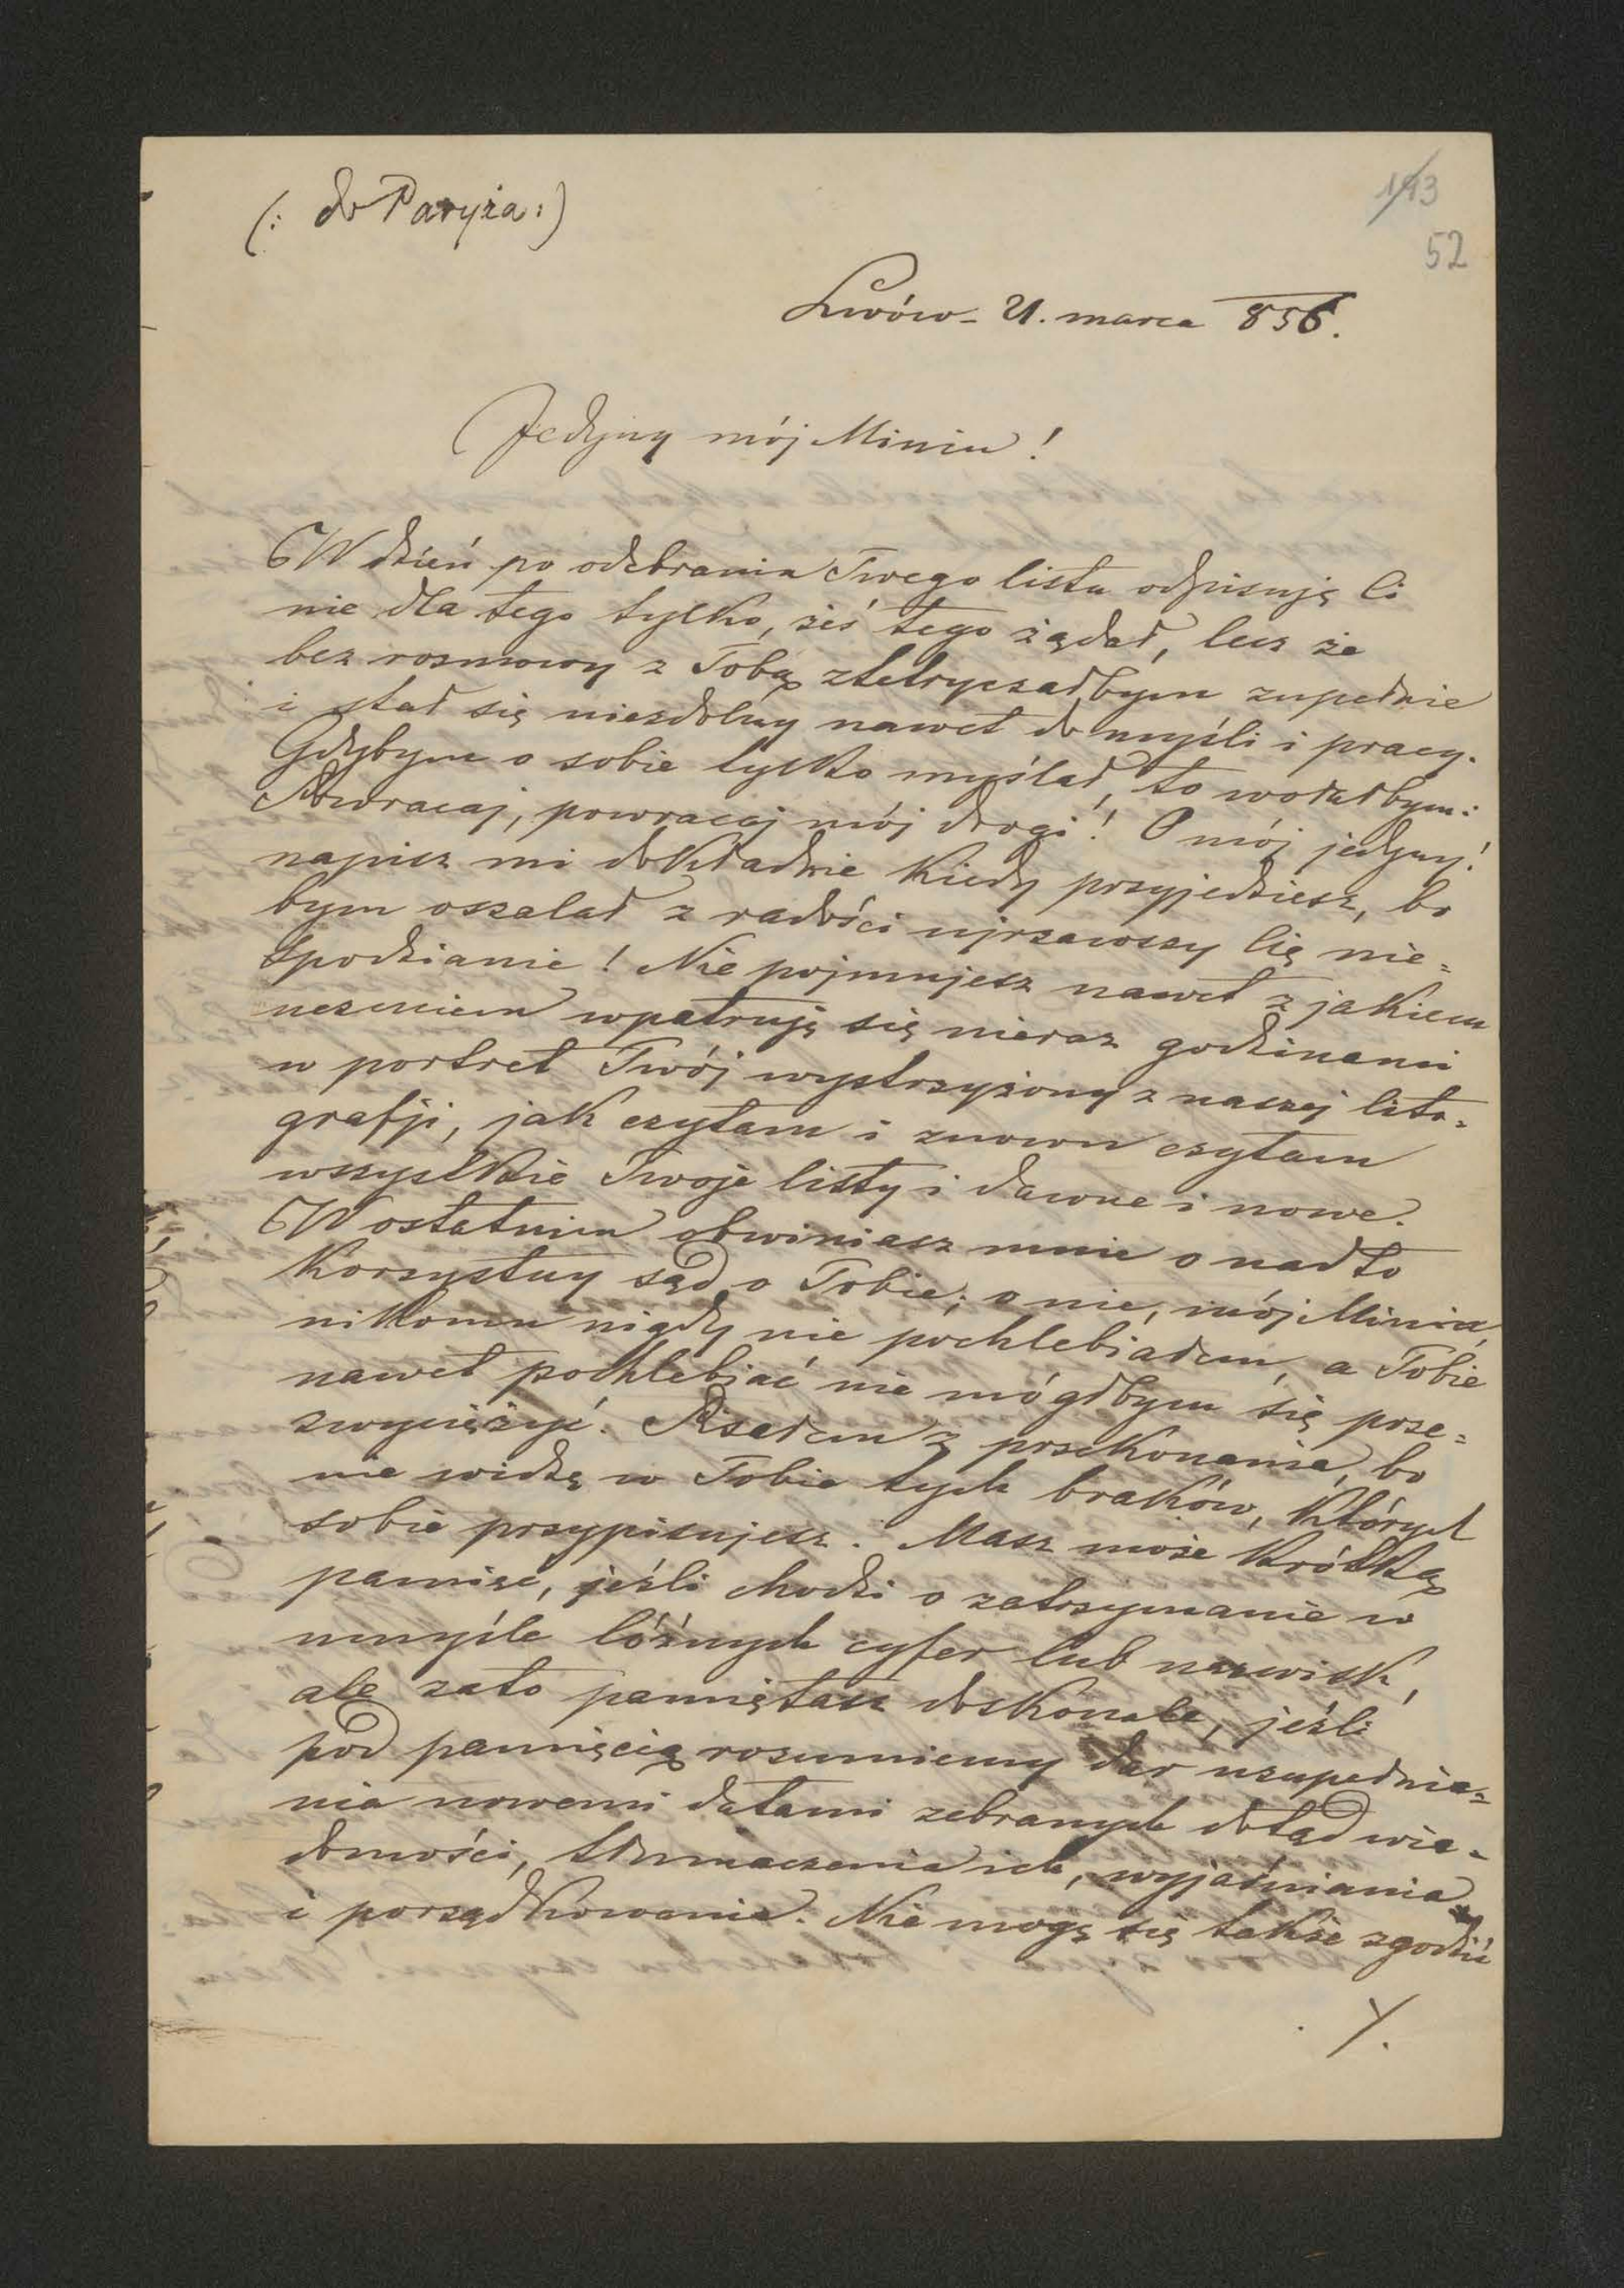 (: do Paryża :)
193
52
Lwów - 21. marca 856.
Jedyny mój Miniu!
W dzień po odebraniu Twego listu odpisuję Ci
nie dla tego tylko, żeś tego żądał, lecz że
bez rozmowy z Tobą ztetryczałbym zupełnie
i stał się niezdolny nawet do myśli i pracy.
Gdybym o sobie tylko myślał, to wołałbym:
Powracaj, powracaj mój drogi! O mój jedyny!
napisz mi dokładnie kiedy przyjedziesz, bo
bym oszalał z radości ujrzawszy Cię nie=
spodzianie! Nie pojmujesz nawet z jakiem
uczuciem wpatruję się nieraz godzinami
w portret Twój wystrzyżony z naszej lito=
grafji, jak czytam i znowu czytam
wszystkie Twoje listy i dawne i nowe.
W ostatnim obwiniasz mnie o nadto
korzystny sąd o Tobie; o nie, mój Miniu,
nikomu nigdy nie pochlebiałem, a Tobie
nawet pochlebiać nie mógłbym się prze=
zwyciężyć. Pisałem z przekonania, bo
nie widzę w Tobie tych braków, których
sobie przypisujesz. Masz może krótką
pamięć, jeśli chodzi o zatrzymanie w
umyśle lóźnych cyfer lub nazwisk,
ale zato pamiętasz doskonale, jeśli
pod pamięcią rozumiemy dar uzupełnia=
nia nowemi datami zebranych dotąd wia=
domości, tłumaczenia ich, wyjaśniania
i porządkowania. Nie mogę się także zgodzić
./.